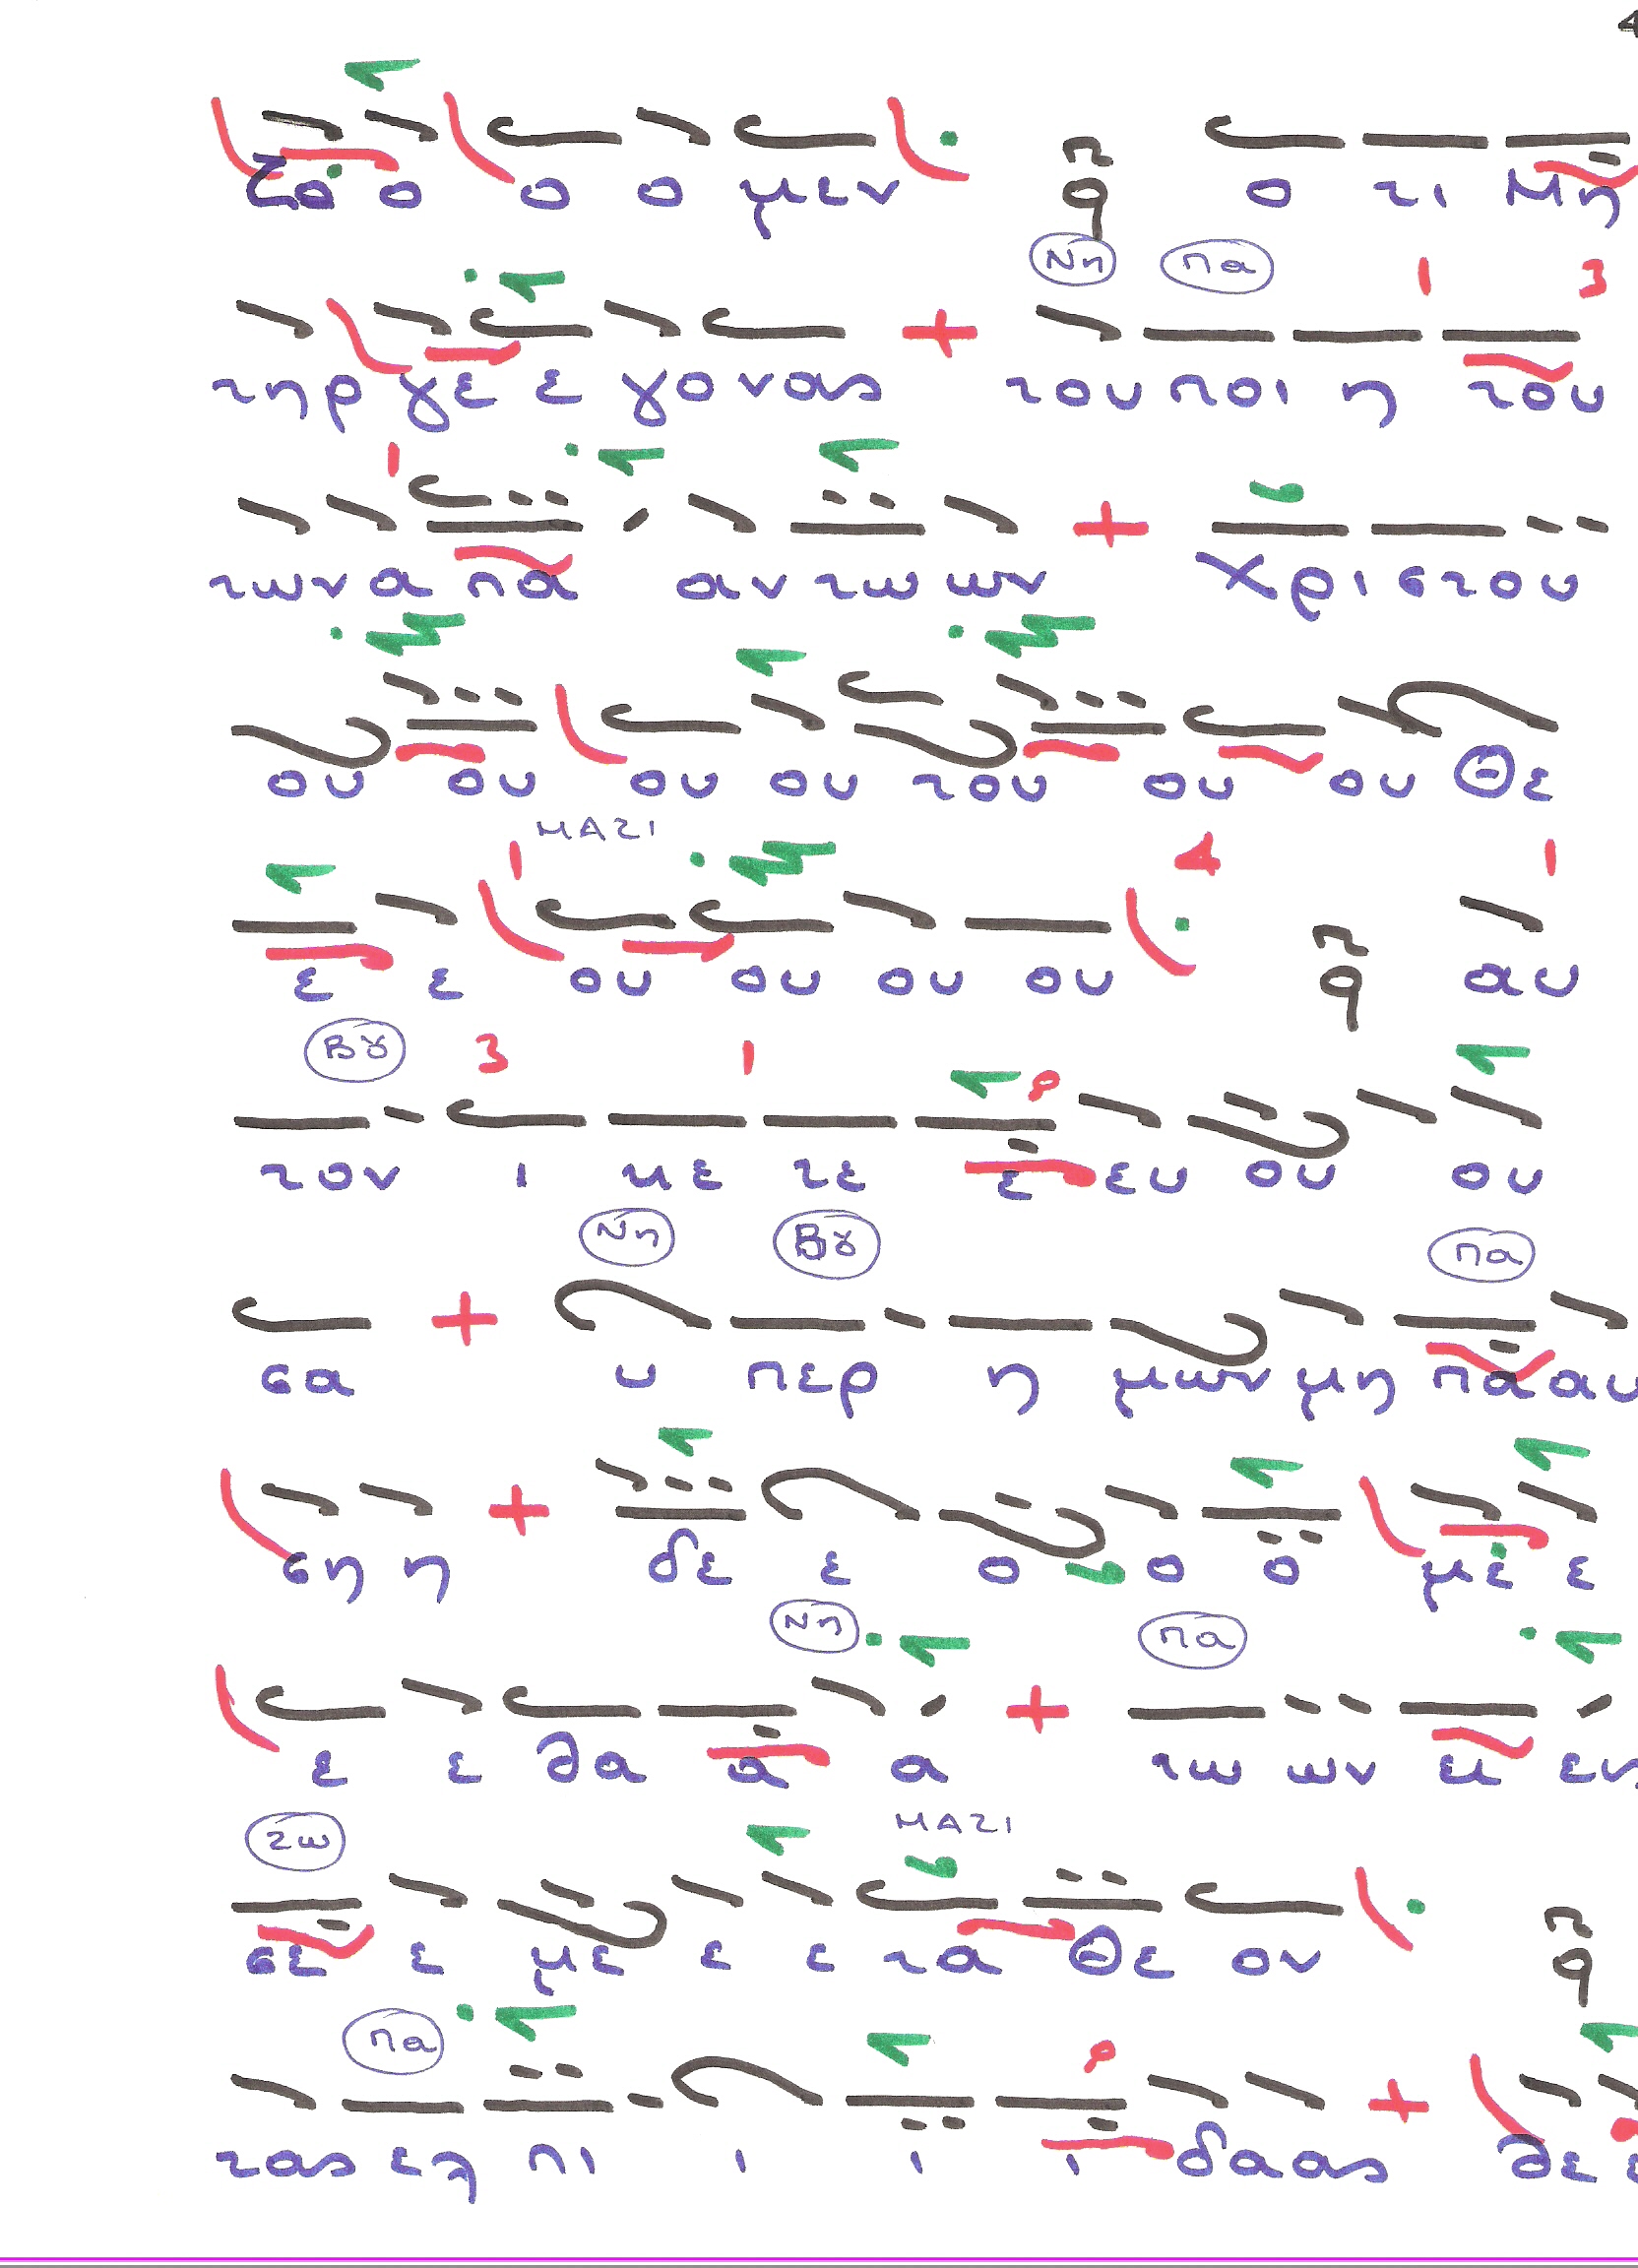 4
ζο ο ο ο μεν π q ο τι Μη
Νη πα 1 3
τηρ γε ε γο νας + του ποι η του
1
των α πα αν τω ων + Χρι στου
ου ου ου ου του ου ου Θε
1 ΜΑΖΙ 4 1
ε ε ου ου ου ου π q αυ
Βȣ 3 1
τον ι κε τε ε ευ ου ου
Νη Βȣ πα
σα + υ περ η μων μη πα αυ
ση η + δε ε ο ο ο με ε
Νη πα
ε ε θα α α + τω ων ει εν
Ζω ΜΑΖΙ
σε ε με ε ε τα Θε ον π q
πα
τας ελ πι ι ι ι δα ας + θε ε